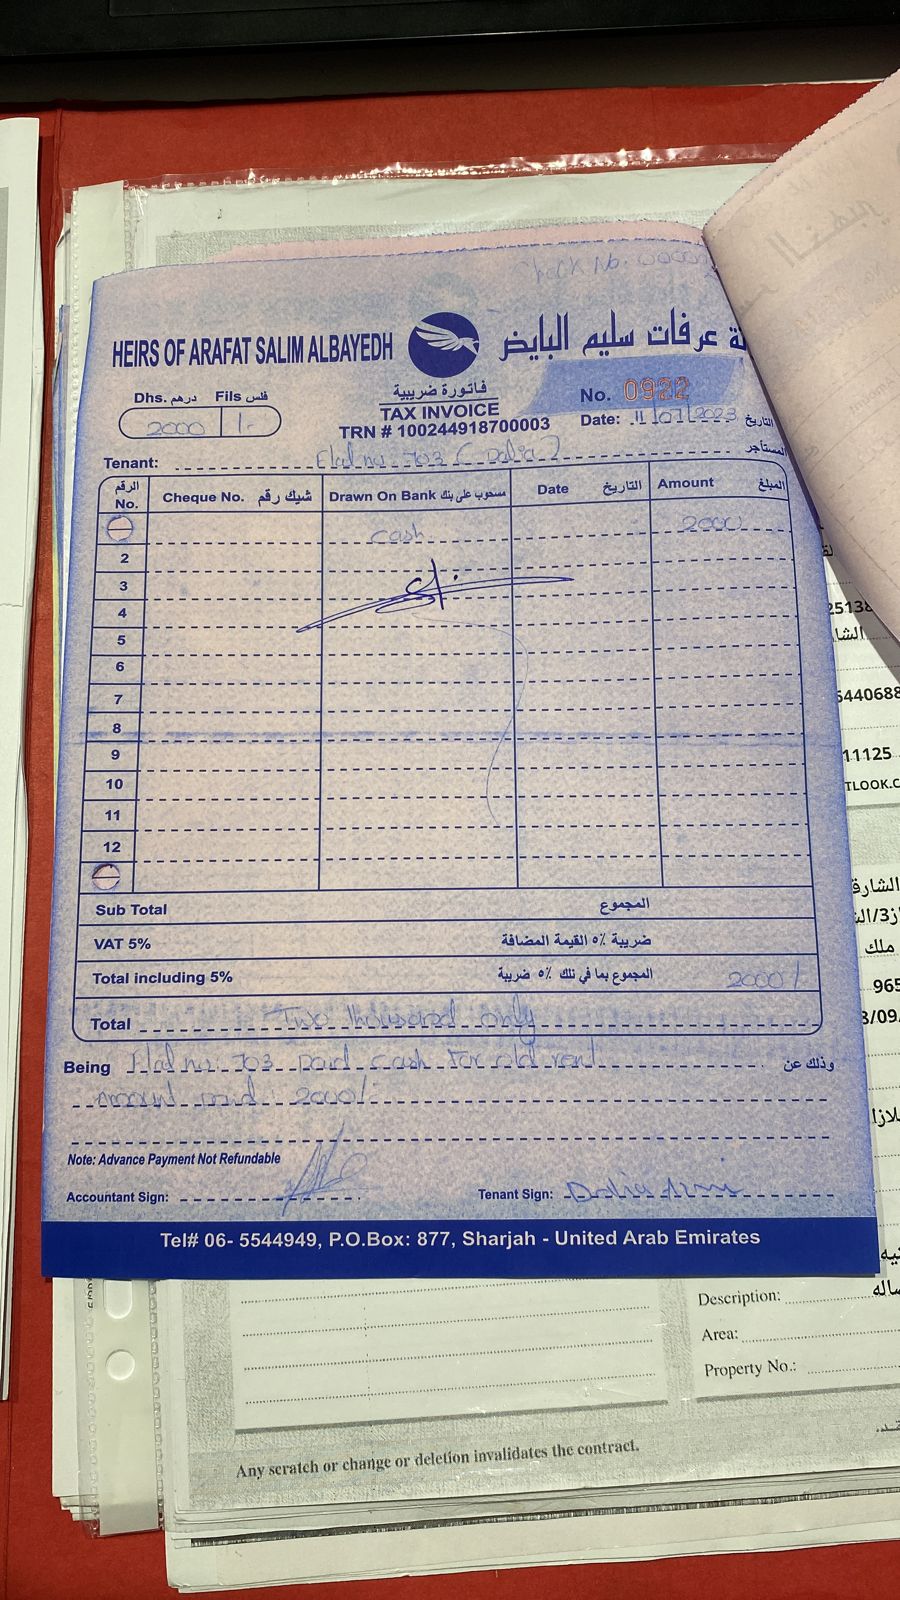 Check No. 0000
HEIRS OF ARAFAT SALIM ALBAYEDH
عرفات سليم البايض
Dhs. درهم Fils فلس
2000 /-
فاتورة ضريبية
TAX INVOICE
TRN # 100244918700003
No. 0922
Date: 11/07/2023 التاريخ
Tenant: Flat no: 703 ( Dalia ) المستأجر
الرقم No. Cheque No. شيك رقم Drawn On Bank مسحوب على بنك Date التاريخ Amount المبلغ
cash 2000
2
3
4
5
6
7
8
9
10
11
12
Sub Total المجموع
VAT 5% ضريبة ٥٪ القيمة المضافة
Total including 5% المجموع بما في ذلك ٥٪ ضريبة 2000/
Total Two thousand only
Being Flat no: 703 paid cash for old rent وذلك عن
Amount paid 2000/-
Note: Advance Payment Not Refundable
Accountant Sign: Tenant Sign: Dalia
Tel# 06- 5544949, P.O.Box: 877, Sharjah - United Arab Emirates
25138
الشا
5440688
11125
TLOOK.C
الشارق
ملك
965
3/09/
Description:
Area:
Property No.:
Any scratch or change or deletion invalidates the contract.